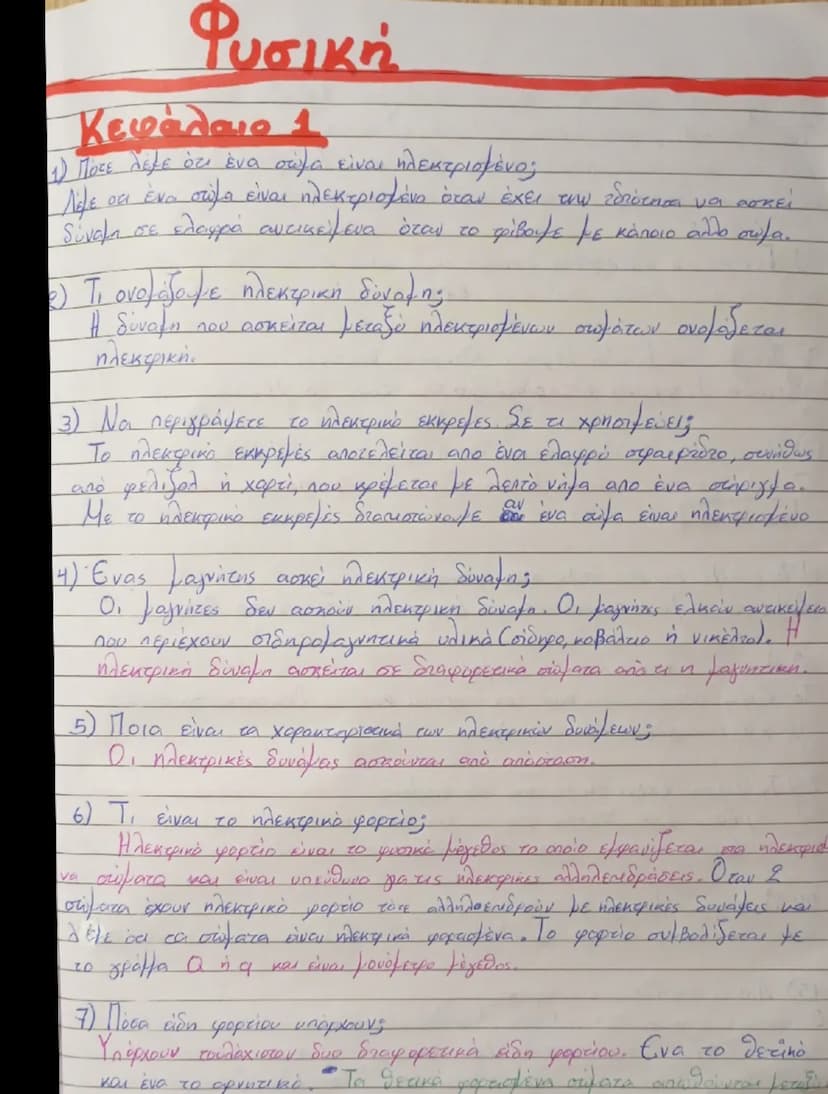 Φυσική
Κεφάλαιο 1
1) Πότε λέμε ότι ένα σώμα είναι ηλεκτρισμένο;
Λέμε οτι ένα σώμα είναι ηλεκτρισμένο όταν έχει την ιδιότητα να ασκεί
δύναμη σε ελαφρά αντικείμενα όταν το τρίβουμε με κάποιο αλλο σώμα.
2) Τι ονομάζουμε ηλεκτρική δύναμη;
Η δύναμη που ασκείται μεταξύ ηλεκτρισμένων σωμάτων ονομάζεται
ηλεκτρική.
3) Να περιγράψετε το ηλεκτρικό εκκρεμές. Σε τι χρησιμεύει;
Το ηλεκτρικό εκκρεμές αποτελείται απο ένα ελαφρύ σφαιρίδιο, συνήθως
από φελιζόλ ή χαρτί, που κρέμεται με λεπτό νήμα απο ένα στήριγμα.
Με το ηλεκτρικό εκκρεμές διαπιστώνουμε αν ένα σώμα είναι ηλεκτρισμένο
4) Ένας μαγνήτης ασκεί ηλεκτρική δύναμη;
Οι μαγνήτες δεν ασκούν ηλεκτρική δύναμη. Οι μαγνήτες ελκούν αντικείμενα
που περιέχουν σιδηρομαγνητικά υλικά (σίδηρο, κοβάλτιο ή νικέλιο). Η
ηλεκτρική δύναμη ασκείται σε διαφορετικά σώματα από τι η μαγνητική.
5) Ποια είναι τα χαρακτηριστικά των ηλεκτρικών δυνάμεων;
Οι ηλεκτρικές δυνάμεις ασκούνται από απόσταση.
6) Τι είναι το ηλεκτρικό φορτίο;
Ηλεκτρικό φορτίο είναι το φυσικό μέγεθος το οποίο εμφανίζεται στα ηλεκτρισμέ
να σώματα και είναι υπεύθυνο για τις ηλεκτρικές αλληλεπιδράσεις. Όταν 2
σώματα έχουν ηλεκτρικό φορτίο τότε αλληλοεπιδρούν με ηλεκτρικές δυνάμεις και
λέμε οτι τα σώματα είναι ηλεκτρικά φορτισμένα. Το φορτίο συμβολίζεται με
το γράμμα Q ή q και είναι μονόμετρο μέγεθος.
7) Πόσα είδη φορτίου υπάρχουν;
Υπάρχουν τουλάχιστον δυο διαφορετικά είδη φορτίου. Ένα το θετικό
και ένα το αρνητικό. Τα θετικά φορτισμένα σώματα απωθούνται μεταξύ